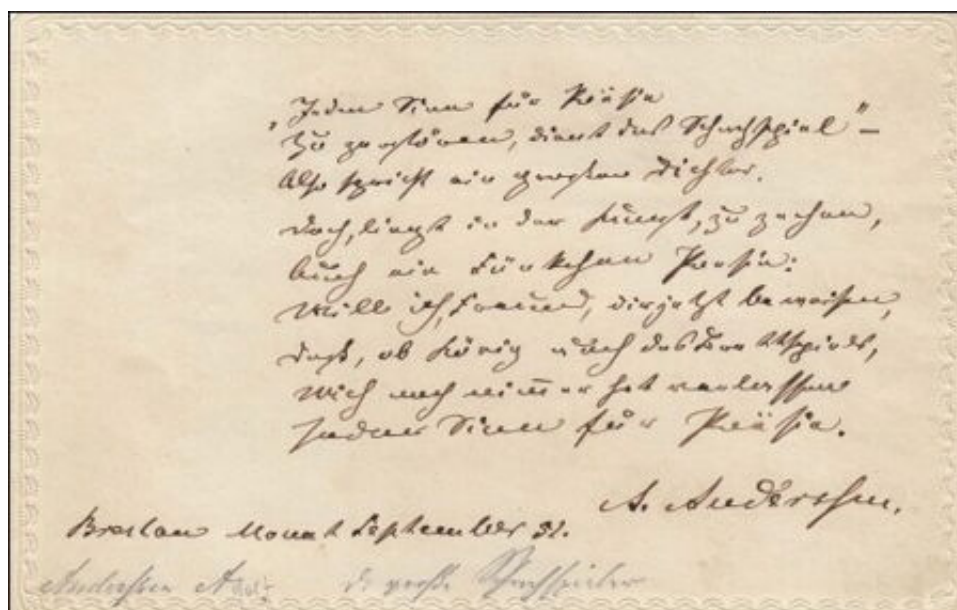 „Jeden Sinn für Poësie
Zu zerstören, dient das Schachspiel“ –
Also spricht ein großer Dichter.
Doch, liegt in der Kunst, zu zechen,
Auch ein Fünkchen Poesie:
Will ich, Freund, dir jetzt beweisen,
Daß, ob König auch des Brettspiels,
Mich noch nim̄er hat verlassen
Jeder Sinn für Poësie.
A. Anderssen.
Breslau Monat September 51.
Anderssen große Schachspieler